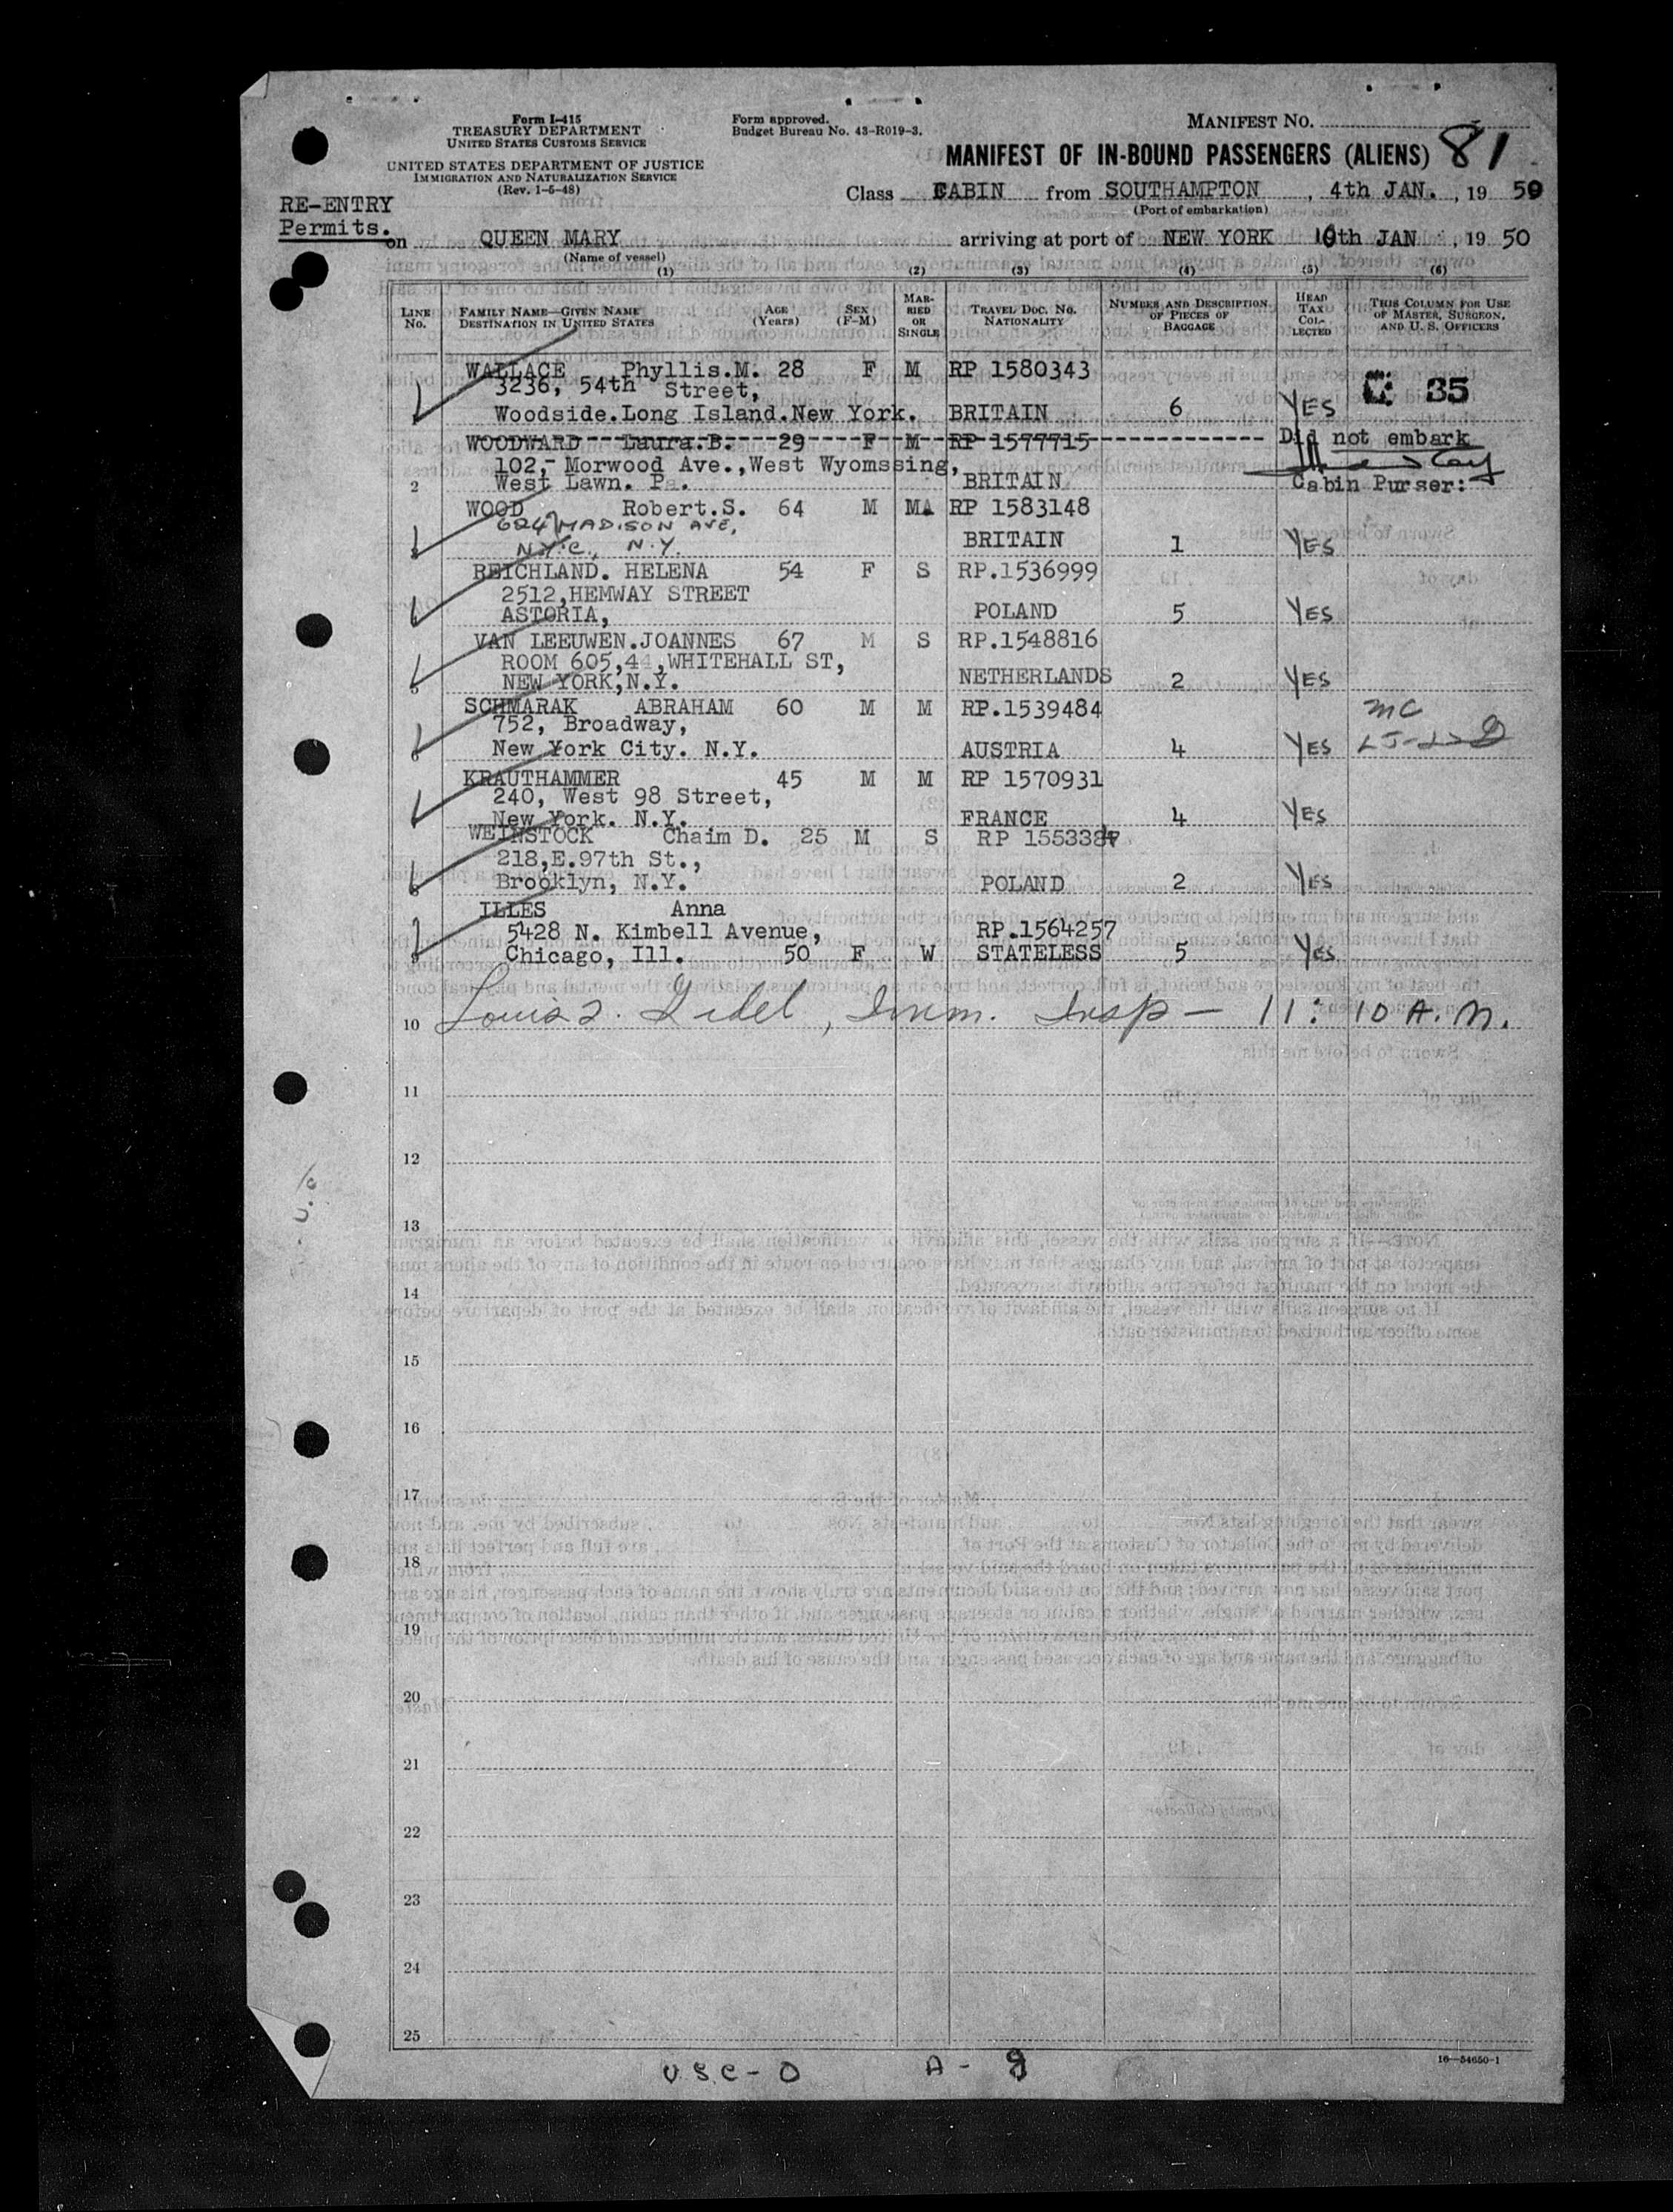 Form I-415
TREASURY DEPARTMENT
UNITED STATES CUSTOMS SERVICE
UNITED STATES DEPARTMENT OF JUSTICE
IMMIGRATION AND NATURALIZATION SERVICE
(Rev. 1-5-48)
Form approved.
Budget Bureau No. 43-R019-3.
MANIFEST NO.
81
MANIFEST OF IN-BOUND PASSENGERS (ALIENS)
Class CABIN from SOUTHAMPTON, 4th JAN., 19 50
(Port of embarkation)
RE-ENTRY
Permits.
on QUEEN MARY arriving at port of NEW YORK 10th JAN, 19 50
(Name of vessel)
(1) (2) (3) (4) (5) (6)
LINE No. FAMILY NAME—GIVEN NAME DESTINATION IN UNITED STATES AGE (Years) SEX (F-M) MARRIED OR SINGLE TRAVEL DOC. NO. NATIONALITY NUMBER AND DESCRIPTION OF PIECES OF BAGGAGE HEAD TAX COLLECTED THIS COLUMN FOR USE OF MASTER, SURGEON, AND U. S. OFFICERS
WALLACE Phyllis.M. 28 F M RP 1580343
3236, 54th Street,
35
Woodside.Long Island.New York. BRITAIN 6 YES
WOODWARD Laura.B. 29 F M RP 1577715 Did not embark
102,- Morwood Ave.,West Wyomssing,
2 West Lawn. Pa. BRITAIN Cabin Purser:
WOOD Robert.S. 64 M MA RP 1583148
624 MADISON AVE,
N.Y.C., N.Y. BRITAIN 1 YES
REICHLAND. HELENA 54 F S RP.1536999
2512,HEMWAY STREET
ASTORIA, POLAND 5 YES
VAN LEEUWEN.JOANNES 67 M S RP.1548816
ROOM 605,44,WHITEHALL ST,
5 NEW YORK,N.Y. NETHERLANDS 2 YES
SCHMARAK ABRAHAM 60 M M RP.1539484 MC
752, Broadway,
6 New York City. N.Y. AUSTRIA 4 YES
KRAUTHAMMER 45 M M RP 1570931
240, West 98 Street,
New York. N.Y. FRANCE 4 YES
WEINSTOCK Chaim D. 25 M S RP 1553384
218,E.97th St.,
8 Brooklyn, N.Y. POLAND 2 YES
ILLES Anna
5428 N. Kimbell Avenue, RP.1564257
9 Chicago, Ill. 50 F W STATELESS 5 Yes
10 Louis Imm. Insp — 11:10 A.M.
11
12
13
14
15
16
17
18
19
20
21
22
23
24
25
16—54650-1
USC-0 A-8